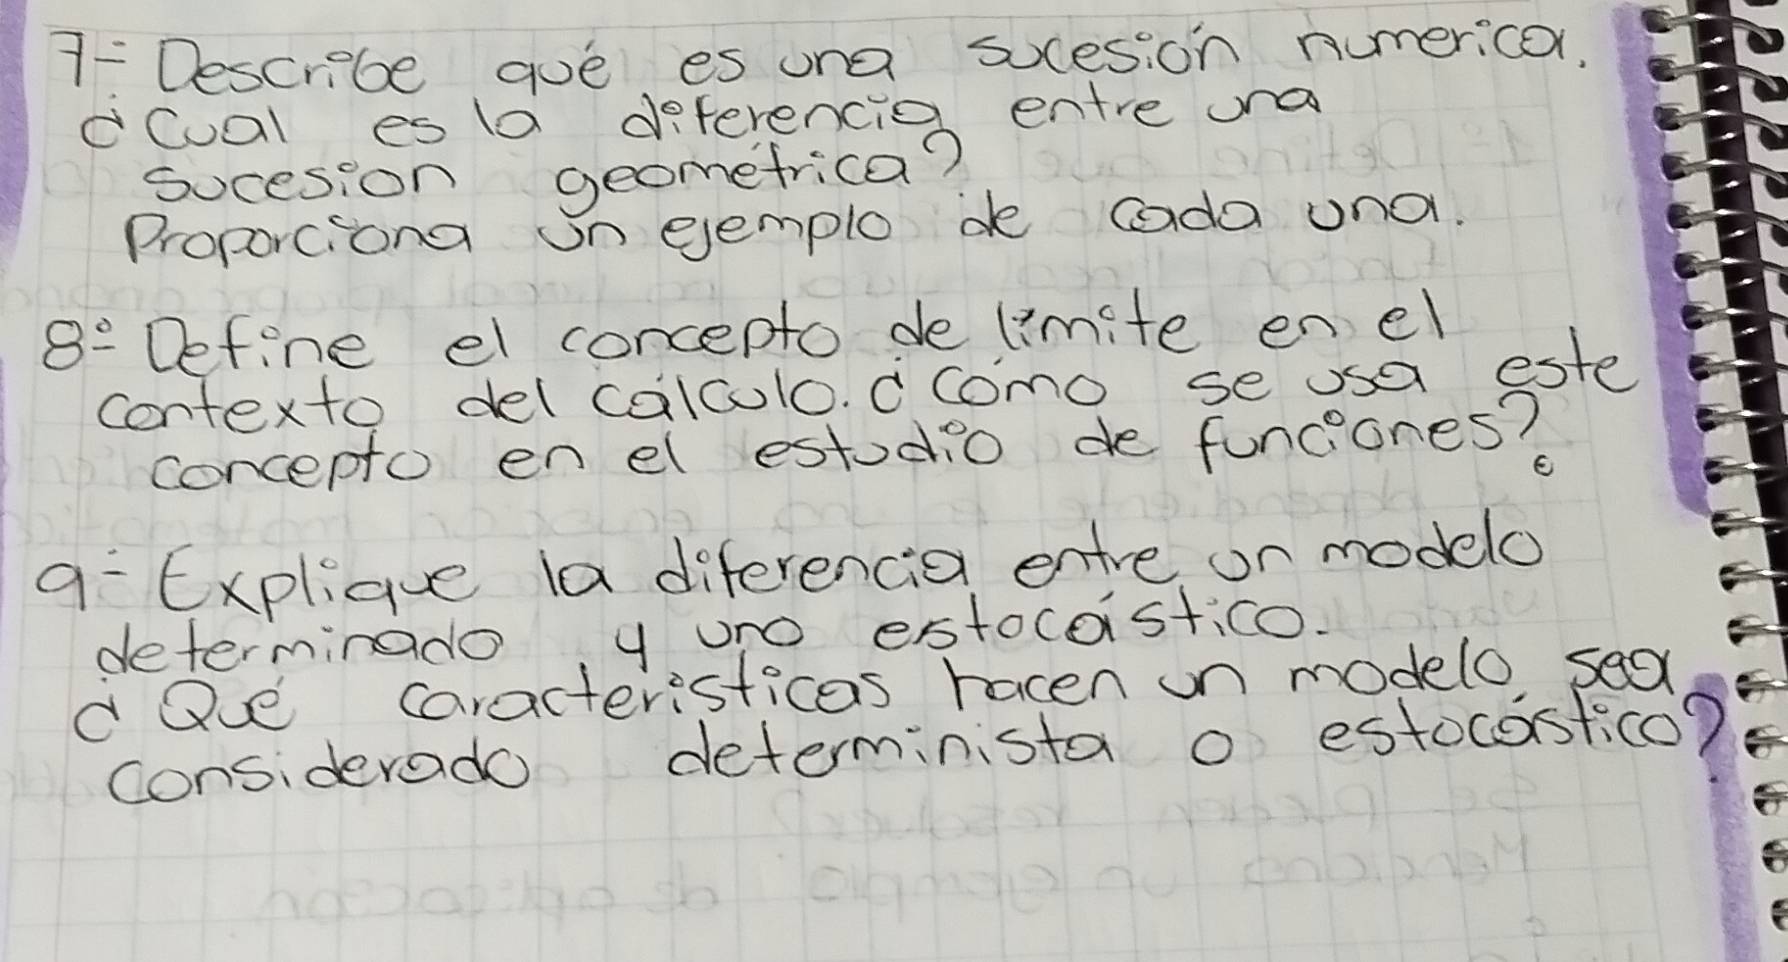 7- Describe qué es una sucesión numerica.
¿Cual es la diferencia entre una
sucesion geométrica?
Proporciona un ejemplo de cada una.
8- Define el concepto de límite en el
contexto del cálculo. ¿Cómo se usa este
concepto en el estudio de funciones?
9- Explique la diferencia entre un modelo
determinado y uno estocástico.
¿Qué características hacen un modelo sea
considerado determinista o estocástico?